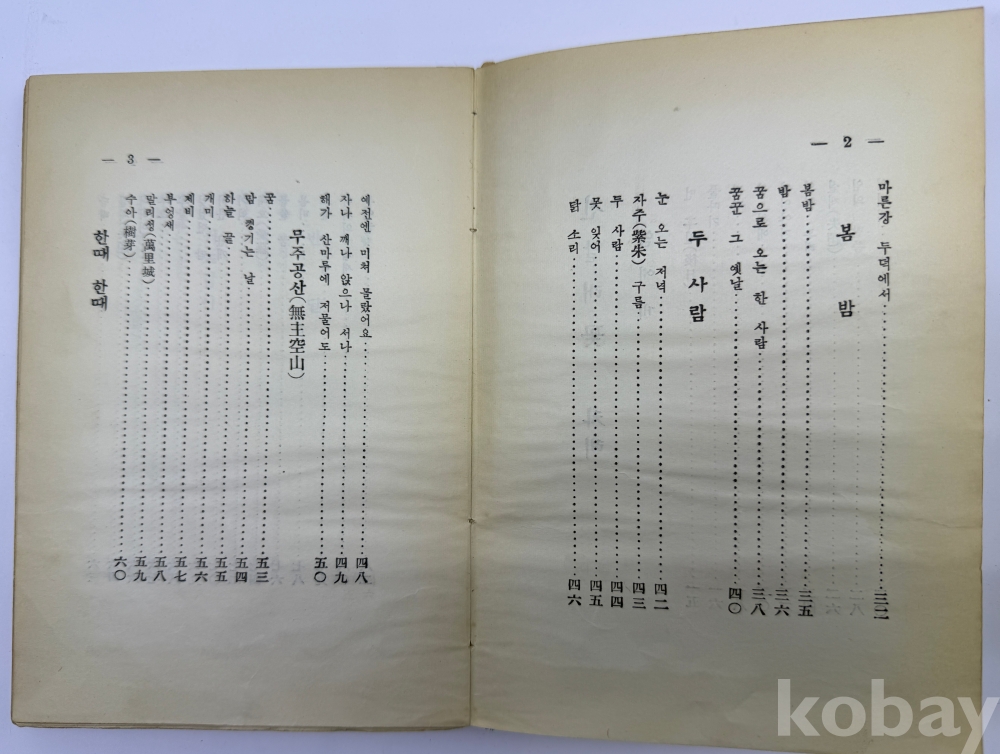 — 2 —
마른강 두덕에서……三二
봄 밤
봄밤……三五
밤……三六
꿈으로 오는 한 사람……三八
꿈꾼 그 옛날……四〇
두 사람
눈 오는 저녁……四二
자주(紫朱) 구름……四三
두 사람……四四
못 잊어……四五
닭 소리……四六
— 3 —
예전엔 미처 몰랐어요……四八
자나 깨나 앉으나 서나……四九
해가 산마루에 저물어도……五〇
무주공산(無主空山)
꿈……五三
맘 켕기는 날……五四
하늘 끝……五五
개미……五六
제비……五七
부엉새……五八
말리성(萬里城)……五九
수아(樹芽)……六〇
한때 한때
kobay